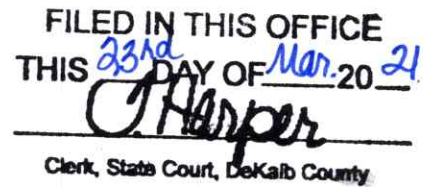 FILED IN THIS OFFICE
THIS 23rd DAY OF Mar. 20 21
J Harper
Clerk, State Court, DeKalb County